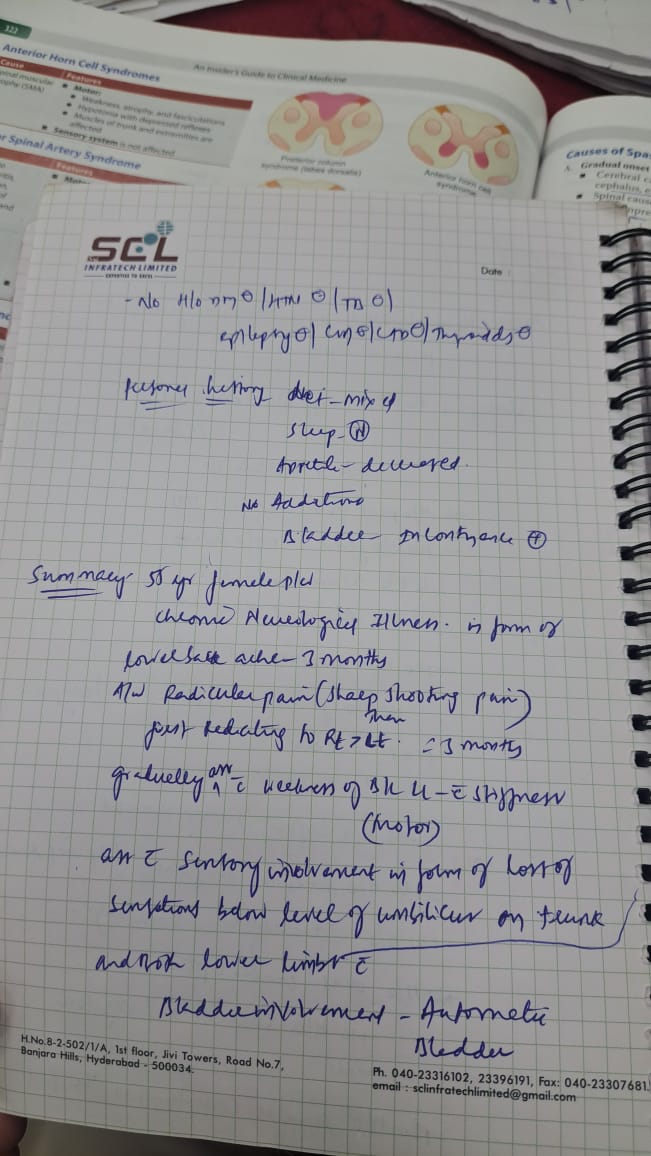 322
An Insider's Guide to Clinical Medicine
Anterior Horn Cell Syndromes
Cause
Features
Motor:
Weakness, atrophy, and fasciculations
Hypotonia with depressed reflexes
Muscles of trunk and extremities are
affected
Sensory system is not affected
Spinal Artery Syndrome
Features
Posterior column
syndrome (tabes dorsalis)
Anterior horn cell
syndrome
Causes of Spa
A. Gradual onset
Cerebral
cephalus,
Spinal
SCL
INFRATECH LIMITED
Date :
- No H/o DM ⊖ / HTN ⊖ / TB ⊖ /
epilepsy ⊖ / ⊖ / ⊖ / Thyroids ⊖
Personal history diet - mixed
Sleep - Ⓝ
- decreased.
No Addictions
Bladder - ⊕
Summary 55 yr female
chronic Neurological Illness. in form of
ache - 3 months
A/W Radicular pain (sharp shooting pain)
first radiating to Rt > Lt. Then 3 months
gradually ass c̄ weakness of c̄ stiffness
(Motor)
ass c̄ sensory involvement in form of loss of
sensations below level of umbilicus on trunk
and both lower limbs c̄
Bladder involvement - Automatic
Bladder
H.No.8-2-502/1/A, 1st floor, Jivi Towers, Road No.7,
Banjara Hills, Hyderabad - 500034.
Ph. 040-23316102, 23396191, Fax: 040-23307681
email : sclinfratechlimited@gmail.com